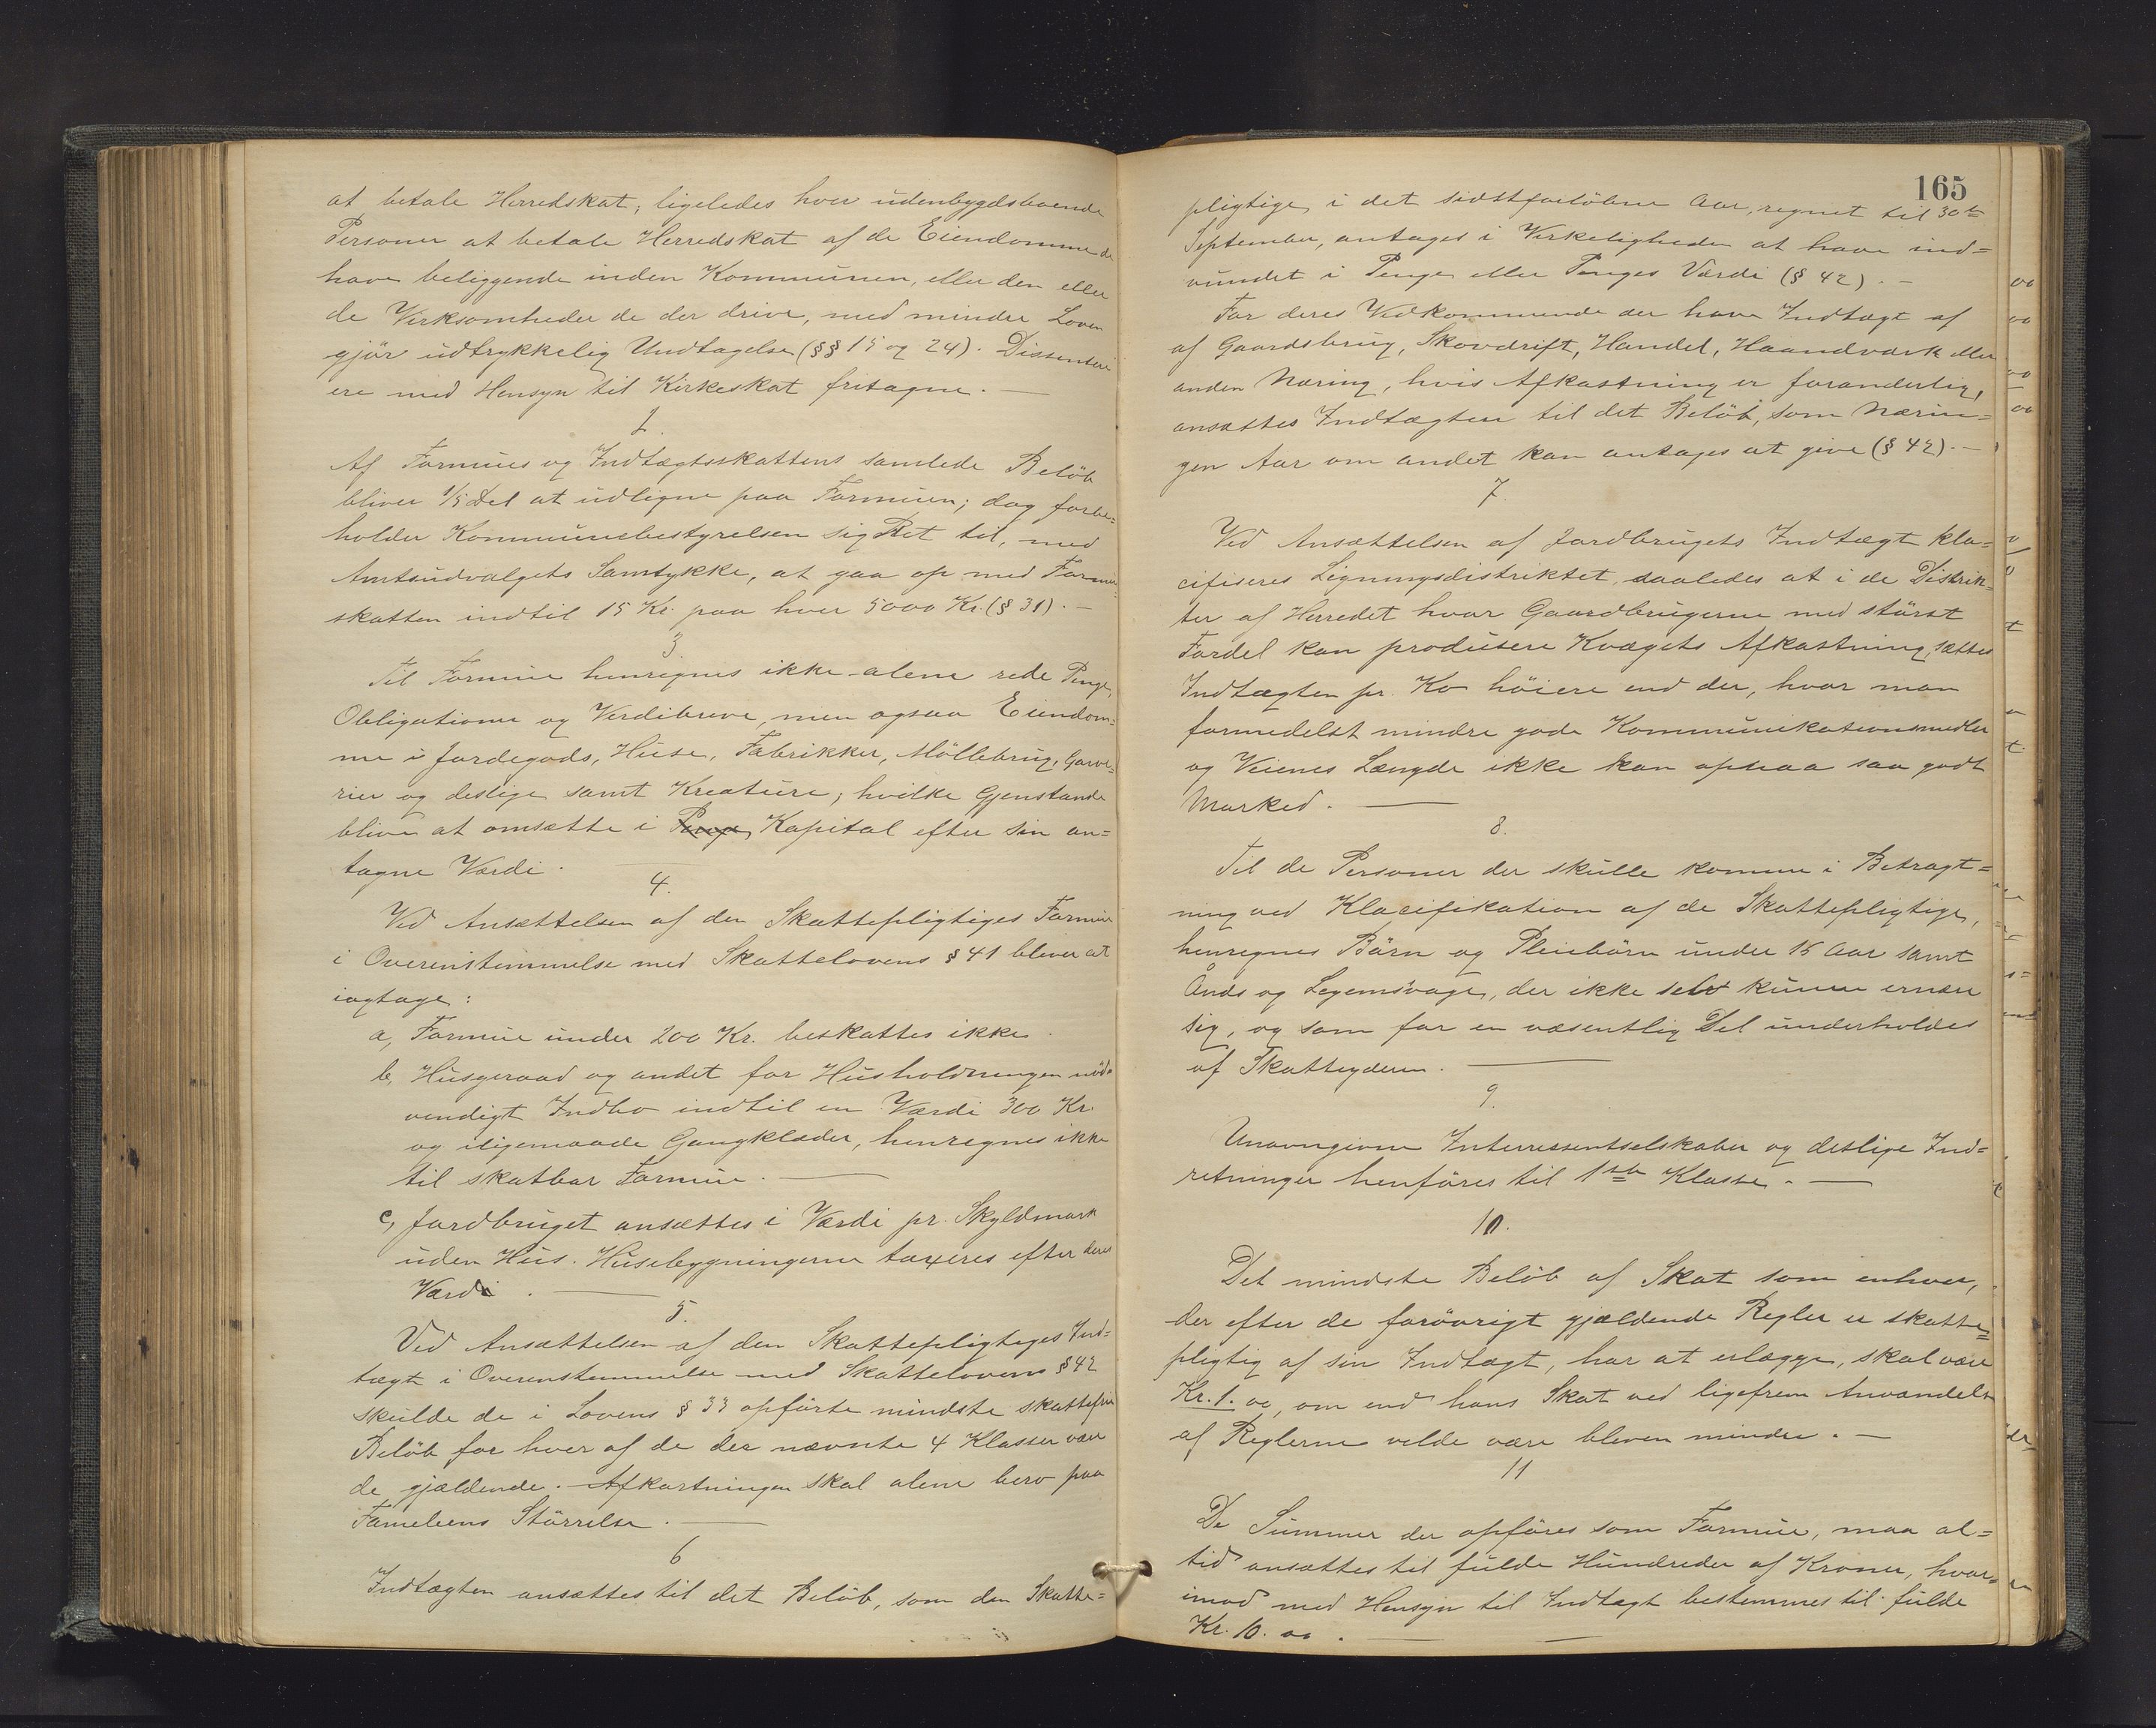 at betale Herredskat, ligeledes hver udenbygdsboende
Personer at betale Herredskat af de Eiendomme de
have beliggende inden Kommunen, eller den eller
de Virksomheder de der drive, med mindre Loven
gjør udtrykkelig Undtagelse (§§ 15 og 24). Dissentere
ere med Hensyn til Kirkeskat fritagne. —
2.
Af Formues og Indtægtsskattens samlede Beløb
bliver 1/5 Del at udligne paa Formuen; dog forbe=
holder Kommunebestyrelsen sig Ret til, med
Amtsudvalgets Samtykke, at gaa op med Formue
skatten indtil 15 Kr. paa hver 5000 Kr. (§ 31). —
3.
Til Formue henregnes ikke alene rede Penge,
Obligationer og Verdibreve, men ogsaa Eiendom=
me i Jordegods, Huse, Fabrikker, Møllebrug, Garve=
rier og deslige samt Kreature; hvilke Gjenstande
bliver at omsætte i Penge Kapital efter sin an=
tagne Værdi. —
4.
Ved Ansættelsen af den Skattepligtiges Formue
i Overenstimmelse med Skattelovens § 41 bliver at
iagtage:
a, Formue under 200 Kr. beskattes ikke.
b, Husgeraad og andet for Husholdningen nöd=
vendigt Indbo indtil en Værdi 300 Kr.
og iligemaade Gangklæder, henregnes ikke
til skatbar Formue. —
c, Jordbruget ansættes i Værdi pr. Skyldmark
uden Hus. Husebygningerne taxeres efter deres
Værdi. —
5.
Ved Ansættelsen af den Skattepligtiges Ind=
tægt i Overenstemmelse med Skattelovens § 42
skulde de i Lovens § 33 opførte mindste skattefrie
Beløb for hver af de der nævnte 4 Klasser være
de gjældende. Afkortningen skal alene bero paa
Fameliens Størrelse. —
6
Indtægten ansættes til det Beløb, som den Skatte=
165
pligtige, i det sidstforløbne Aar, regnet til 30te
September, antages i Virkeligheden at have ind=
vundet i Penge eller Penges Værdi (§ 42). —
For deres Vedkommende der have Indtægt af
af Gaardsbrug, Skovdrift, Handel, Haandværk eller
anden Næring, hvis Afkastning er foranderlig,
ansættes Indtægten til det Beløb, som Nærin=
gen Aar om andet kan antages at give (§ 42). —
7.
Ved Ansættelsen af Jordbrugets Indtægt kla=
cifiseres Ligningsdistriktet, saaledes at i de Distrik=
ter af Herredet hvor Gaardbrugerne med størst
Fordel kan produsere Kvægets Afkastning, sættes
Indtægten pr. Ko høiere end der, hvor man
formedelst mindre gode Kommunikationsmidler
og Veienes Længde ikke kan opnaa saa godt
Marked. —
8.
Til de Personer der skulle komme i Betragt=
ning ved Klacifikation af de Skattepligtige,
henregnes Børn og Pleiebørn under 15 Aar samt
Ånds og Legemsvage, der ikke selv kunne ernære
sig, og som for en væsentlig Del underholdes
af Skatteyderen. —
9.
Unavngivne Interressentselskaber og deslige Ind=
retninger henføres til 1ste Klasse. —
10.
Det mindste Beløb af Skat som enhver,
der efter de forøvrigt gjældende Regler er skatte=
pligtig af sin Indtægt, har at erlægge, skal være
Kr. 1. 00, om end hans Skat ved ligefrem Anvendelse
af Reglerne vilde være bleven mindre. —
11
De Summer der opføres som Formue, maa al=
tid ansættes til fulde Hundreder af Kroner, hvor=
imod med Hensyn til Indtægt bestemmes til fulde
Kr. 10. 00. —